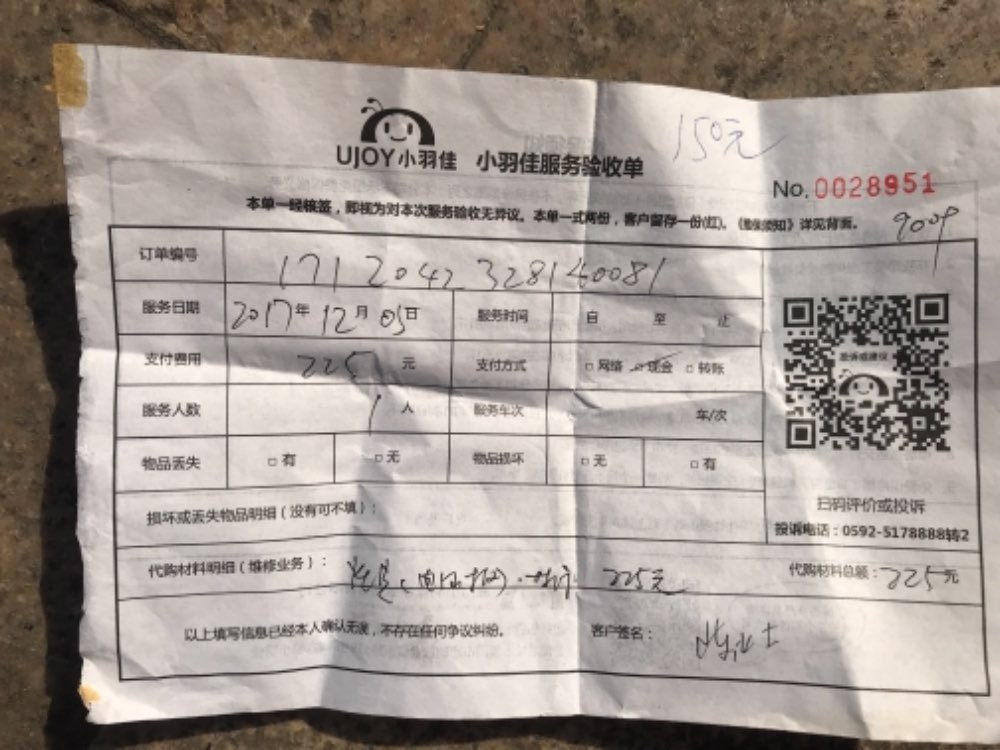 150元
UJOY小羽佳 小羽佳服务验收单
No. 0028951
本单一经核签，即视为对本次服务验收无异议。本单一式两份，客户留存一份(红)。《须知》详见背面。
订单编号 171204232814 0081
服务日期 2017年 12月 05日 服务时间 自 至 止
支付费用 225 元 支付方式 □网络 □现金 □转账
服务人数 1 人 服务车次 车/次
物品丢失 □有 □无 物品损坏 □无 □有
扫码评价或投诉
投诉电话：0592-5178888转2
损坏或丢失物品明细（没有可不填）：
代购材料明细（维修业务）： 225元 代购材料总额：225元
以上填写信息已经本人确认无误，不存在任何争议纠纷。 客户签名：